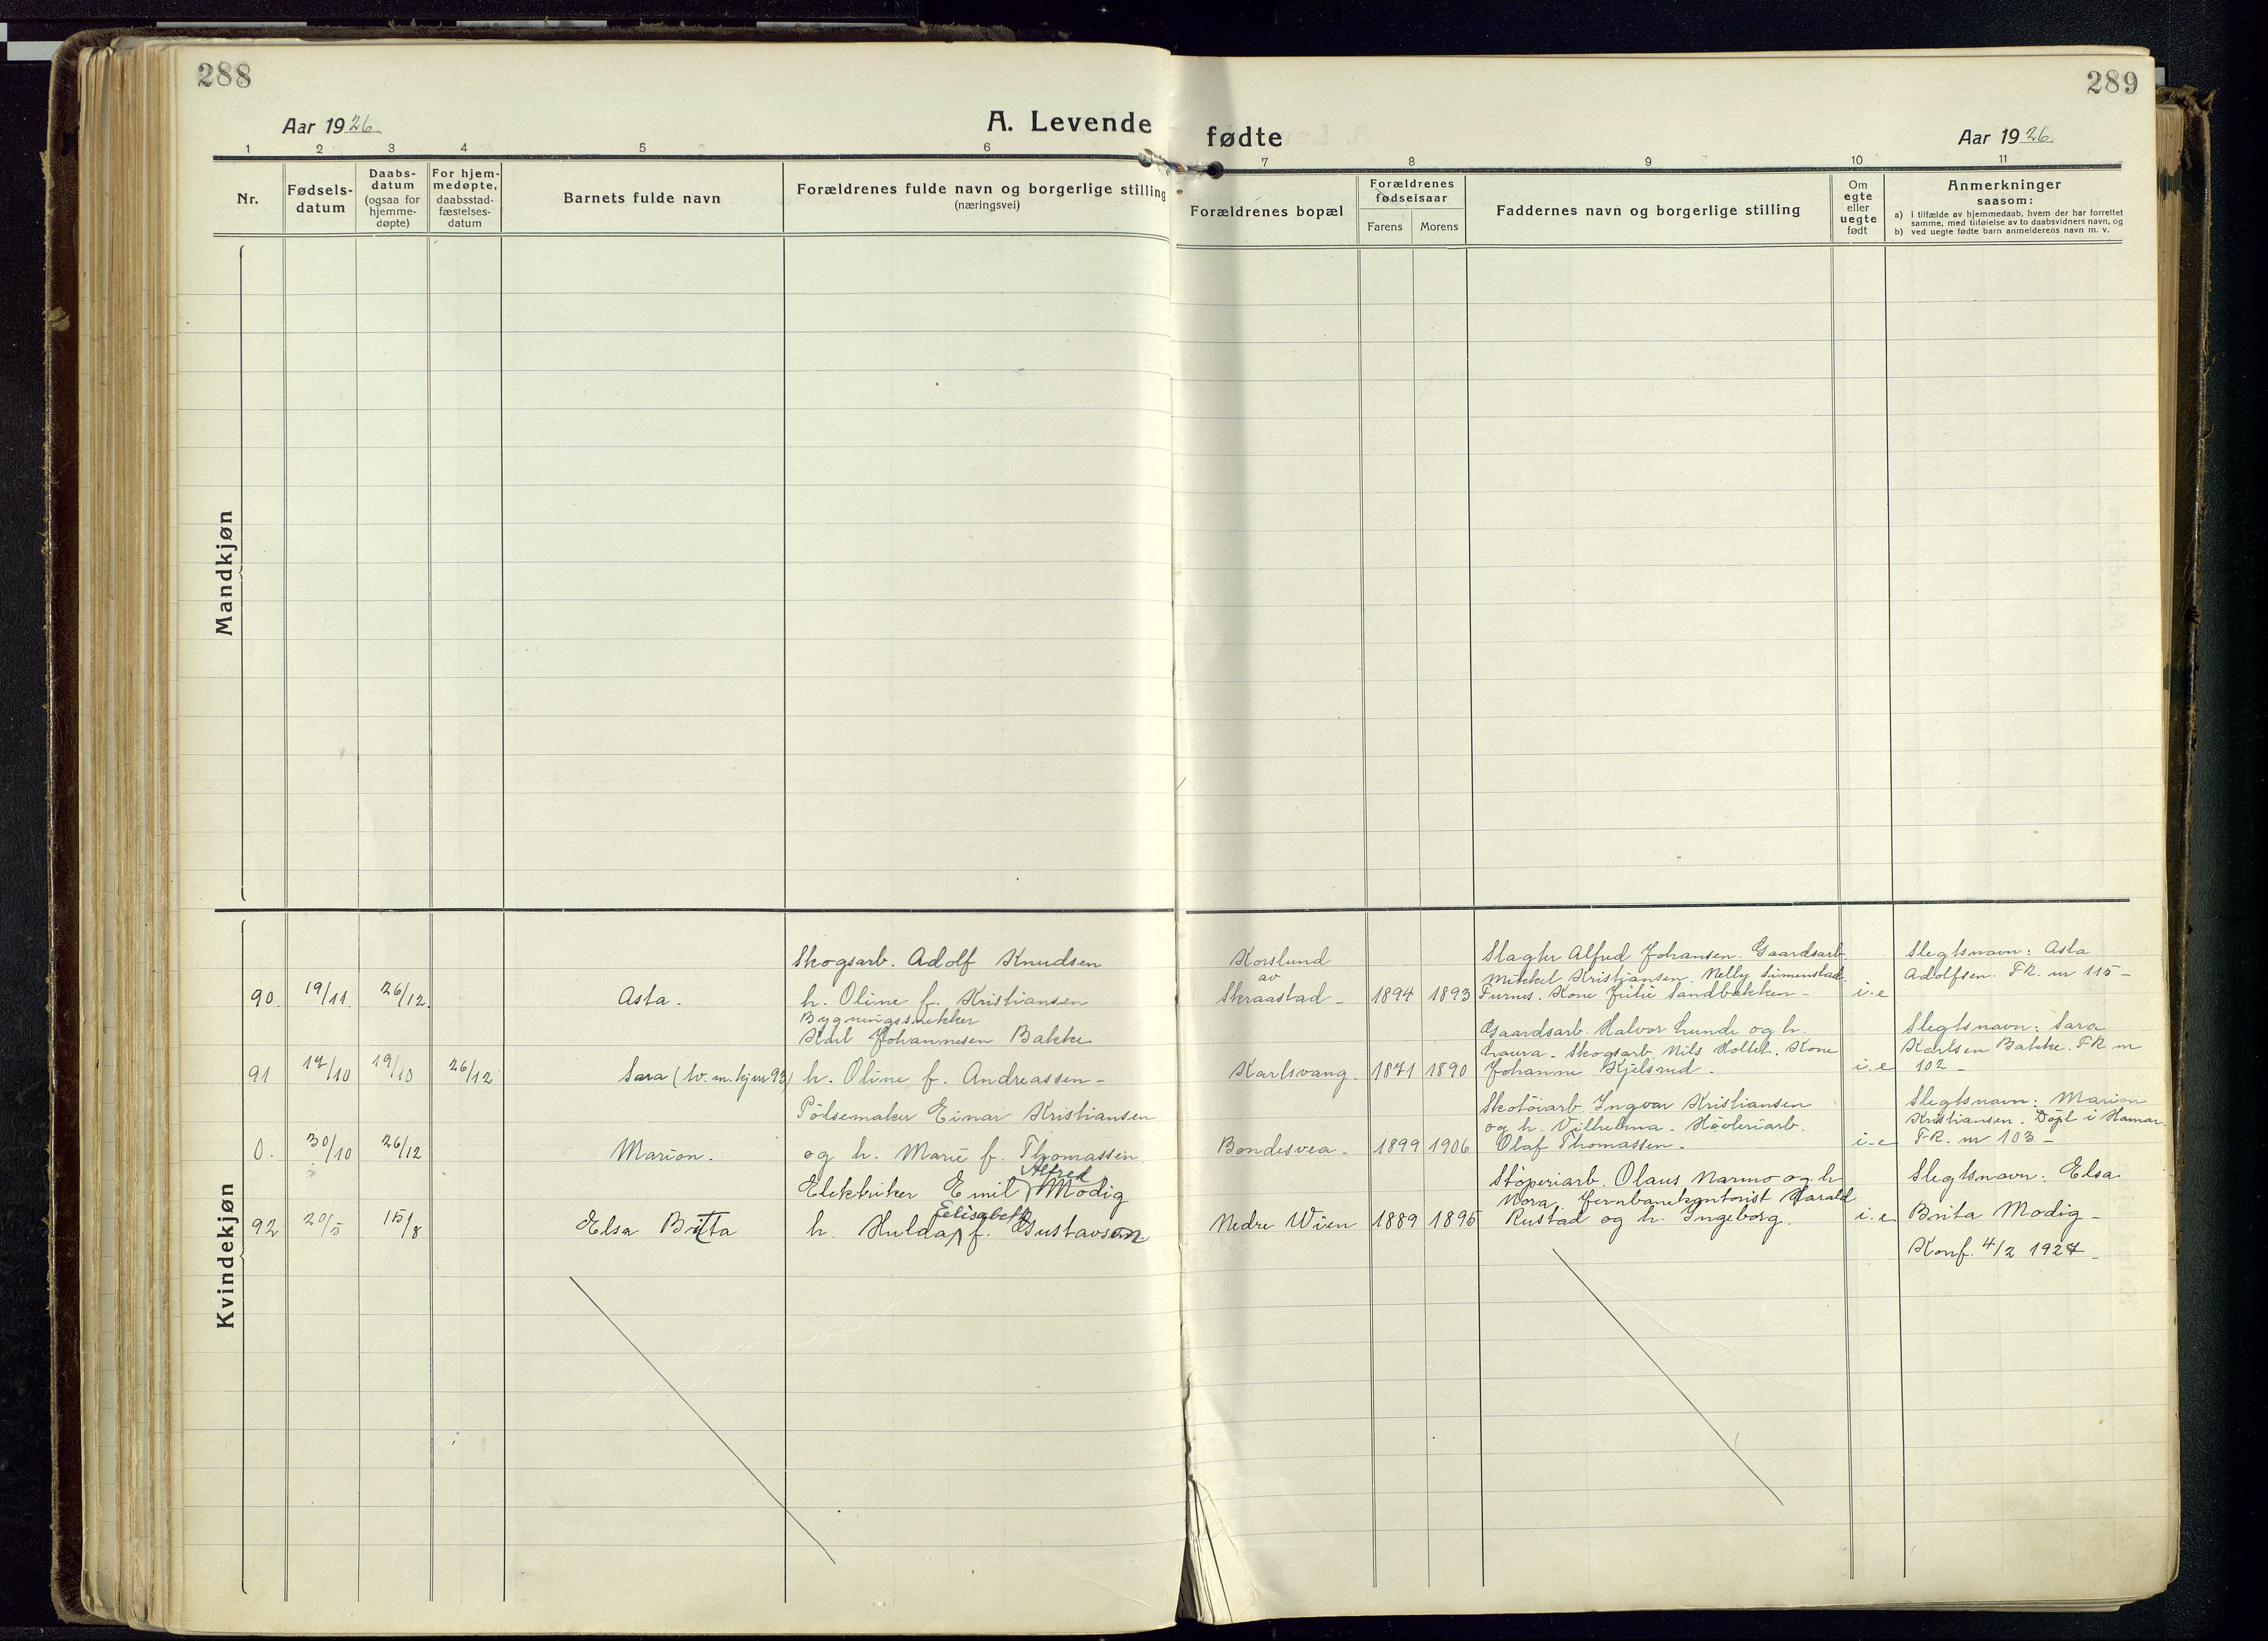 288
289
Aar 1926
A. Levende fødte
Aar 1926
1 2 3 4 5 6 7 8 9 10 11
Nr.
Fødsels-
datum
Daabs-
datum
(ogsaa for
hjemme-
døpte)
For hjem-
medøpte,
daabsstad-
fæstelses-
datum
Barnets fulde navn
Forældrenes fulde navn og borgerlige stilling
(næringsvei)
Forældrenes bopæl
Forældrenes
fødselsaar
Farens Morens
Faddernes navn og borgerlige stilling
Om
egte
eller
uegte
født
Anmerkninger
saasom:
a) i tilfælde av hjemmedaab, hvem der har forrettet
samme, med tilføielse av to daabsvidners navn, og
b) ved uegte fødte barn anmelderens navn m. v.
Mandkjøn
Kvindekjøn
90. 19/11 26/12. Asta.
Skogsarb. Adolf Knudsen
h. Oline f. Kristiansen
Korslund
av
Skraastad –
1894 1893
Slagter Alfred Johansen. Gaardsarb.
Mikkel Kristiansen. Nelly Simenstad.
Furnes. Kone Julie Sandbakken –
i.e
Slegtsnavn: Asta
Adolfsen. FR. nr 115 –
91 17/10 19/10 26/12 Sara (tv. m. kj nr 93)
Bygningssnekker
Karl Johannesen Bakke
h. Oline f. Andreassen –
Karlsvang –
1871 1890
Gaardsarb. Halvor Lunde og h.
Laura – Skogsarb. Nils Holteh. Kone
Johanne Kjelsrud –
i.e
Slegtsnavn: Sara
Karlsen Bakke. FR nr
102 –
0. 30/10 26/12 Marion.
Pölsemaker Einar Kristiansen
og h. Marie f. Thomassen.
Bondesvea –
1899 1906
Skotöiarb. Ingvar Kristiansen
og h. Vilhelma – Høvleriarb.
Olaf Thomassen –
i.e
Slegtsnavn: Marion
Kristiansen. Döpt i Hamar.
FR. nr 103 –
92 20/5 15/8 Elsa Britta
Alfred
Elektriker Emil Modig
Elisabeth
h. Hulda f. Gustavson
Nedre Wien
1889 1895
Stöperiarb. Olaus Narmo og h
Nora, Jernbanekontorist Harald
Rustad og h. Ingeborg.
i.e
Slegtsnavn: Elsa
Brita Modig –
Konf. 4/2 1927 –